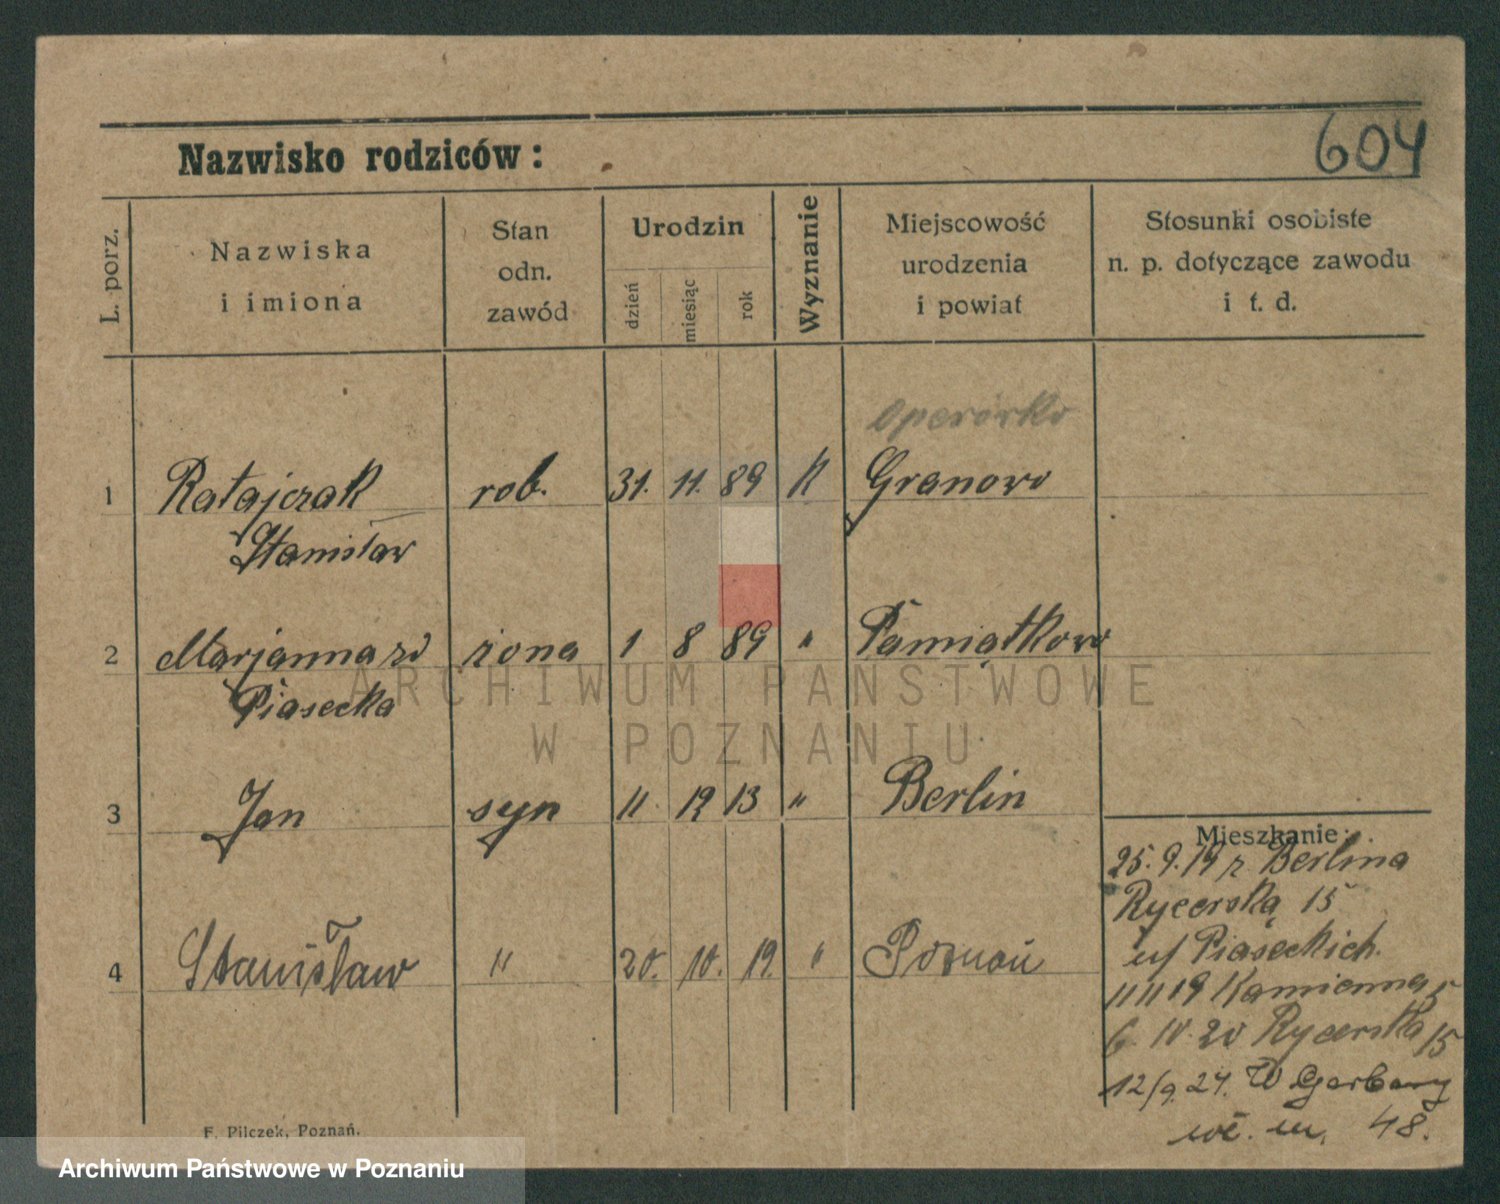 604
Nazwisko rodziców:
L. porz.
Nazwiska
i imiona
Stan
odn.
zawód
Urodzin
dzień
miesiąc
rok
Wyznanie
Miejscowość
urodzenia
i powiat
Stosunki osobiste
n. p. dotyczące zawodu
i t. d.
1 Ratajczak rob. 31. 11. 89 K Granowo
Stanisław
2 Marjanna żona 1 8 89 " Pamiątkowo
Piasecka
3 Jan syn 11 12 13 " Berlin
4 Stanisław " 20. 10. 19. " Poznań
Mieszkanie:
25. 9. 19 z Berlina
Rycerska 15
u/ Piaseckich.
11 11 19 Kamienna 5
6. 10. 20 Rycerska 15
12/9. 24. W Garbary
48.
F. Pilczek, Poznań.
ARCHIWUM PAŃSTWOWE
W POZNANIU
Archiwum Państwowe w Poznaniu